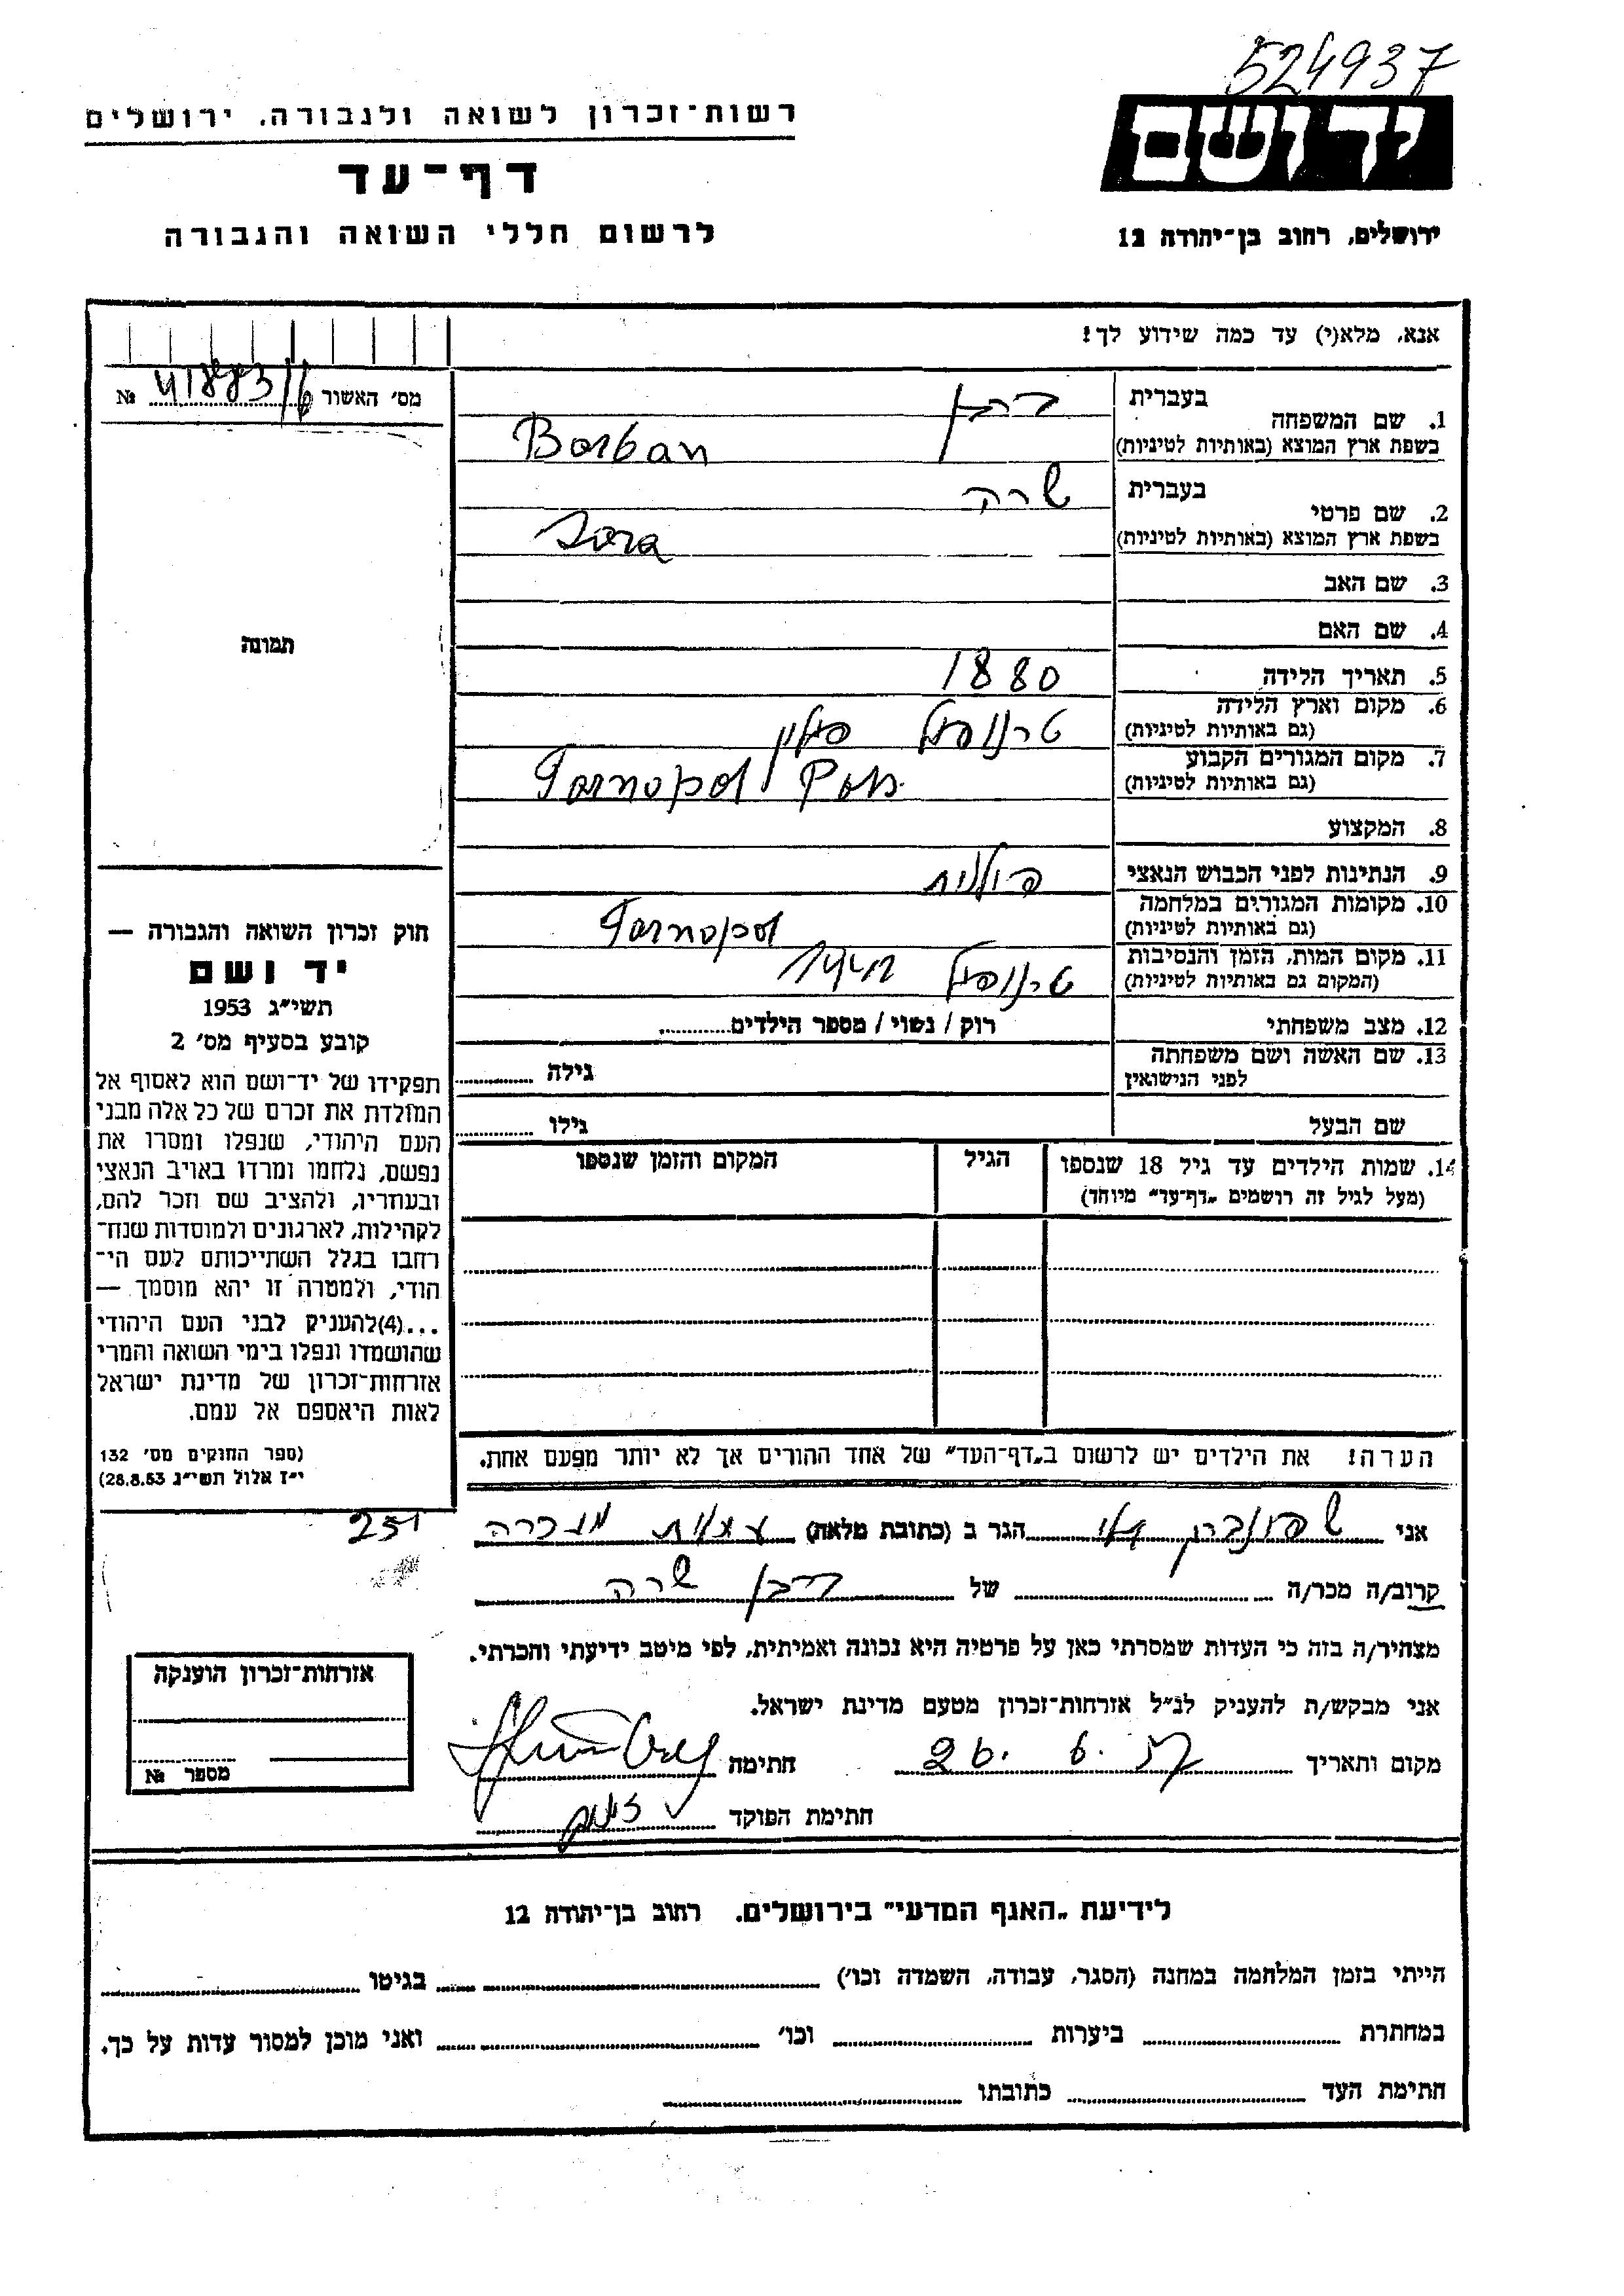 524937
רשות־זכרון לשואה ולגבורה, ירושלים
יד ושם
דף־עד
לרשום חללי השואה והגבורה
ירושלים, רחוב בן־יהודה 12
אנא, מלא(י) עד כמה שידוע לך!
מס׳ האשור №
1. שם המשפחה בעברית
בשפת ארץ המוצא (באותיות לטיניות) Borban
2. שם פרטי בעברית שרה
בשפת ארץ המוצא (באותיות לטיניות) Sora
3. שם האב
4. שם האם
תמונה
5. תאריך הלידה 1880
6. מקום וארץ הלידה טרנופול פולין
(גם באותיות לטיניות)
7. מקום המגורים הקבוע Tarnopol
(גם באותיות לטיניות)
8. המקצוע
9. הנתינות לפני הכבוש הנאצי פולנית
10. מקומות המגורים במלחמה Tarnopol
(גם באותיות לטיניות)
11. מקום המות, הזמן והנסיבות טרנופול
(המקום גם באותיות לטיניות)
12. מצב משפחתי רוק / נשוי / מספר הילדים
13. שם האשה ושם משפחתה גילה
לפני הנישואין
שם הבעל גילו
14. שמות הילדים עד גיל 18 שנספו הגיל המקום והזמן שנספו
(מעל לגיל זה רושמים „דף־עד” מיוחד)
חוק זכרון השואה והגבורה —
יד ושם
תשי״ג 1953
קובע בסעיף מס׳ 2
תפקידו של יד־ושם הוא לאסוף אל
המולדת את זכרם של כל אלה מבני
העם היהודי, שנפלו ומסרו את
נפשם, נלחמו ומרדו באויב הנאצי
ובעוזריו, ולהציב שם וזכר להם,
לקהילות, לארגונים ולמוסדות שנח־
רחבו בגלל השתייכותם לעם הי־
הודי, ולמטרה זו יהא מוסמך —
...(4)להעניק לבני העם היהודי
שהושמדו ונפלו בימי השואה והמרי
אזרחות־זכרון של מדינת ישראל
לאות היאספם אל עמם.
(ספר החוקים מס׳ 132
י״ז אלול תשי״ג 28.8.53)
הערה! את הילדים יש לרשום ב„דף־העד” של אחד ההורים אך לא יותר מפעם אחת.
251
אני הגר ב (כתובת מלאה)
קרוב/ה מכר/ה של שרה
מצהיר/ה בזה כי העדות שמסרתי כאן על פרטיה היא נכונה ואמיתית, לפי מיטב ידיעתי והכרתי.
אני מבקש/ת להעניק לנ״ל אזרחות־זכרון מטעם מדינת ישראל.
מקום ותאריך 26. 6. 57 חתימה
חתימת הפוקד
אזרחות־זכרון הוענקה
מספר №
לידיעת „האגף המדעי” בירושלים, רחוב בן־יהודה 12
הייתי בזמן המלחמה במחנה (הסגר, עבודה, השמדה וכו׳) בגיטו
במחתרת ביערות וכו׳ ואני מוכן למסור עדות על כך.
חתימת העד כתובתו